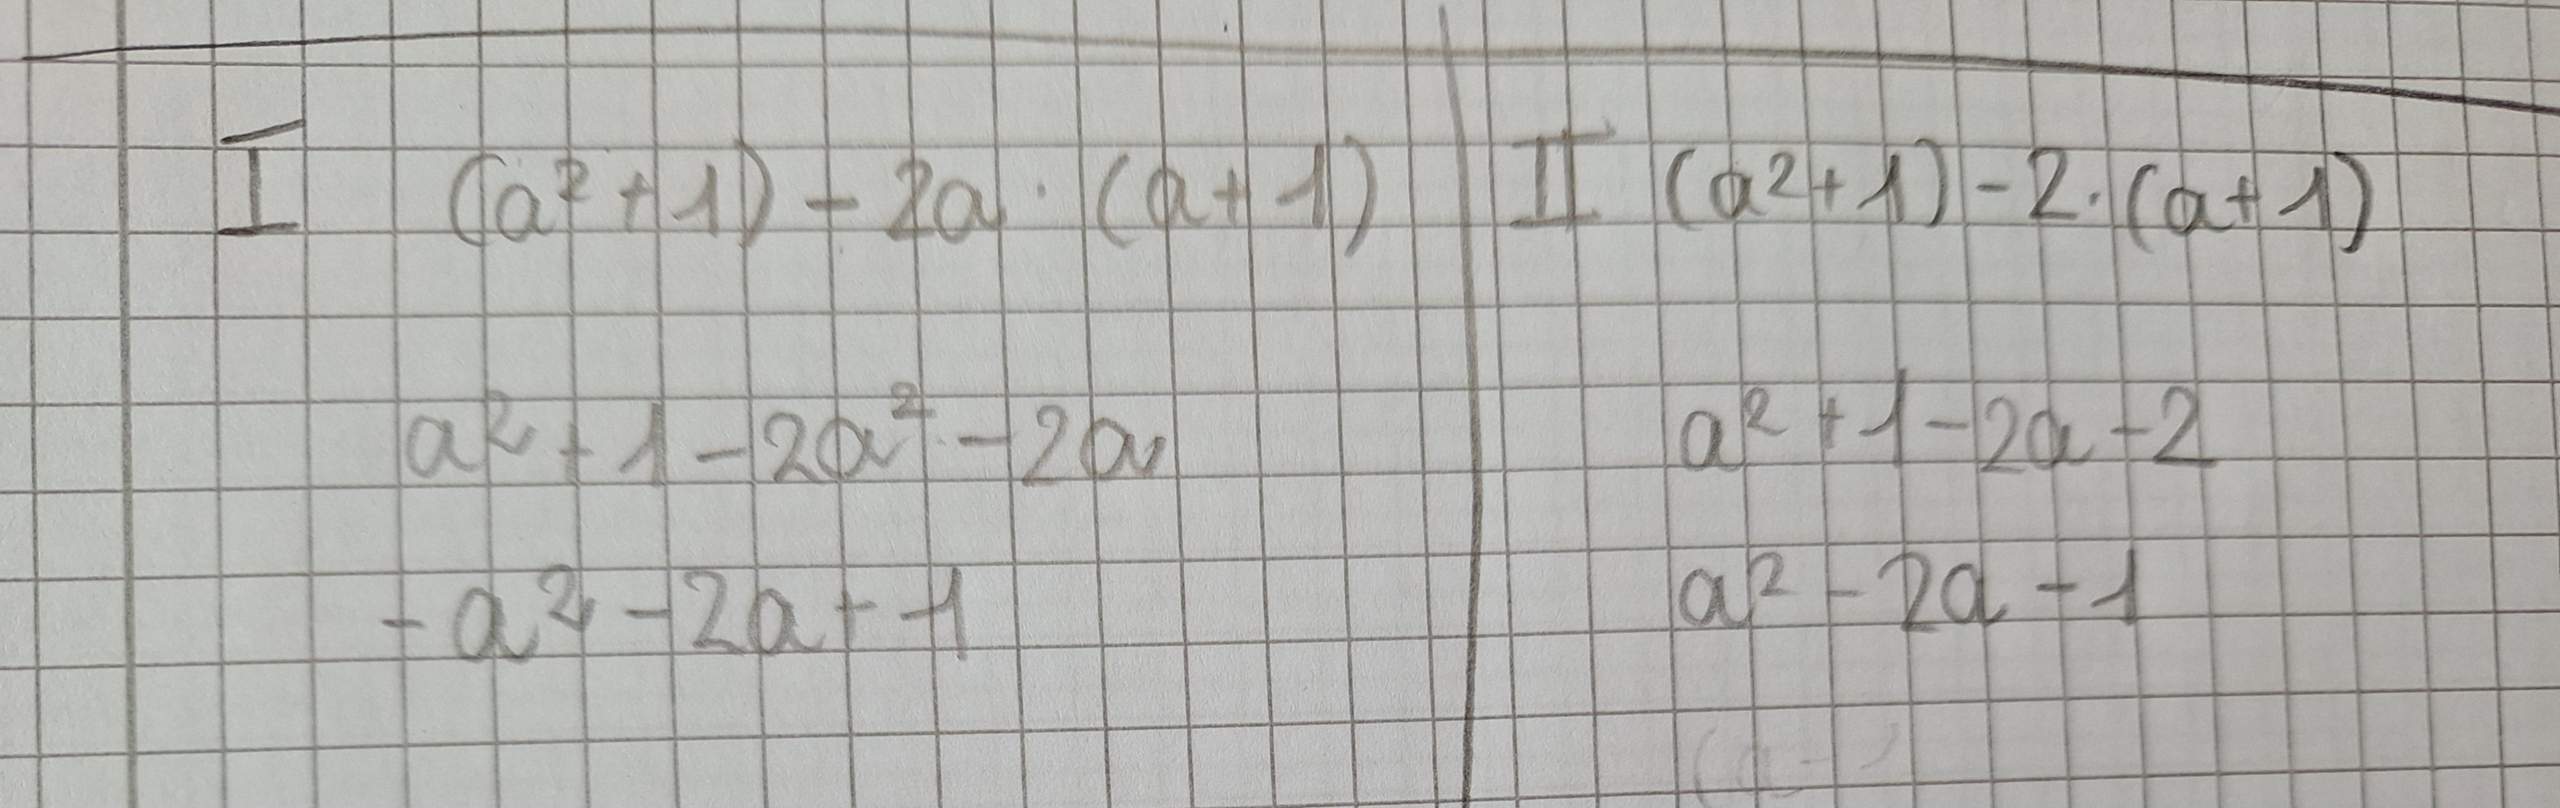 I (a²+1) - 2a · (a+1)
a² + 1 - 2a² - 2a
- a² - 2a + 1
II (a²+1) - 2 · (a+1)
a² + 1 - 2a - 2
a² - 2a - 1